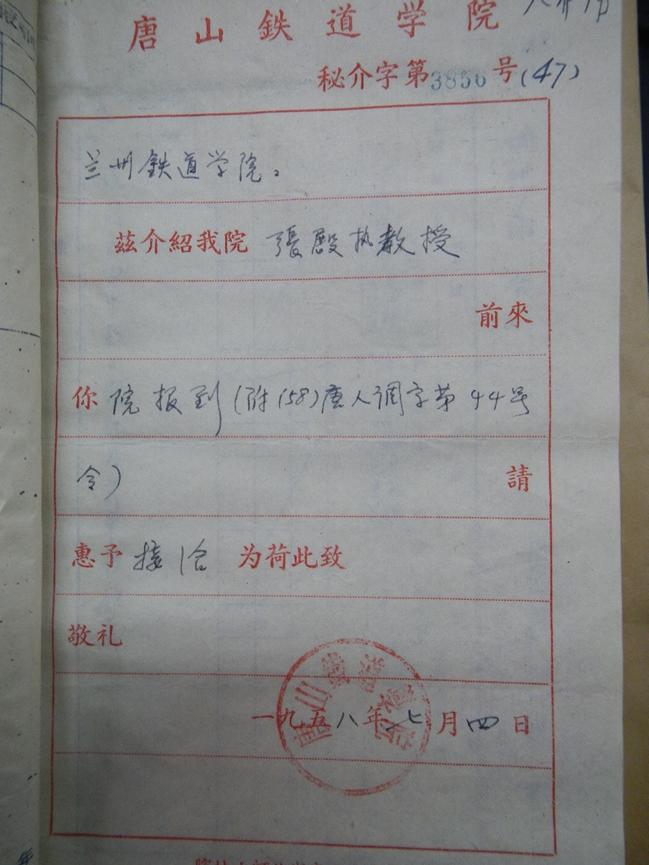 唐山鉄道学院
秘介字第3856号(47)
兰州鉄道学院。
茲介紹我院 張殿执教授
前來
你院报到(附(58)唐人调字第44号
令) 請
惠予接洽 为荷此致
敬礼
一九五八年七月四日